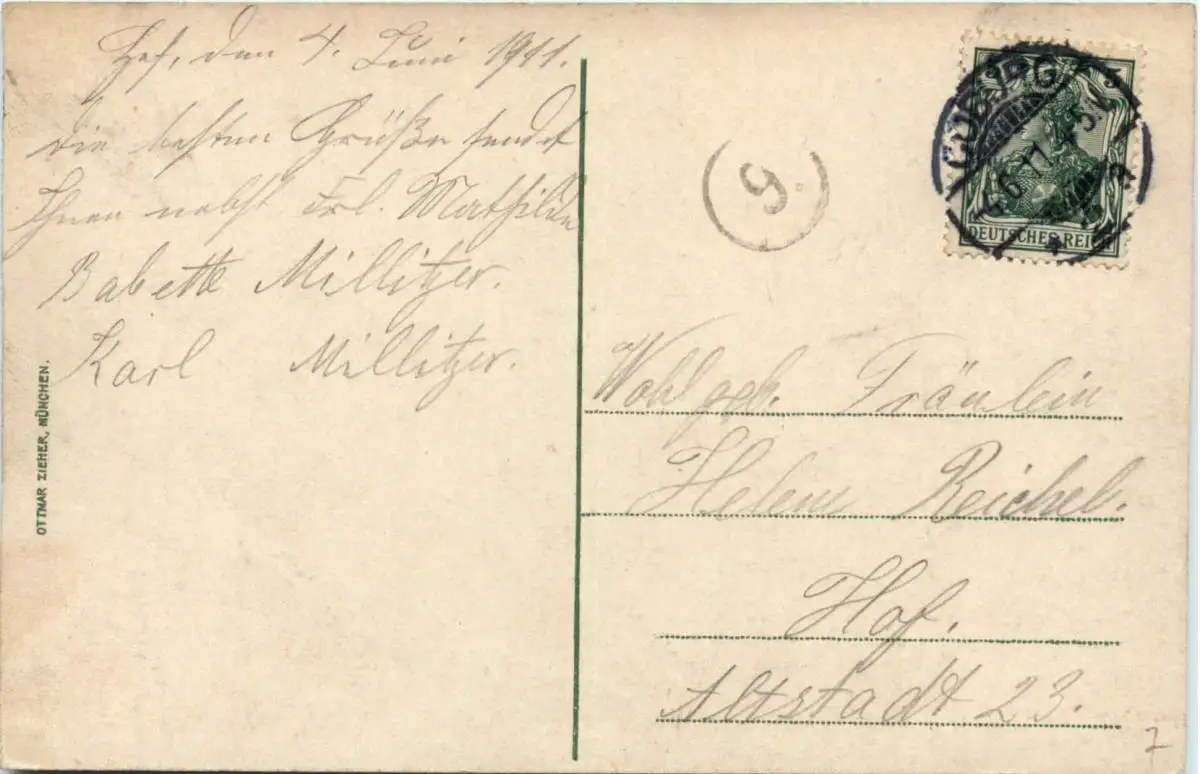 Hof, den 4. Juni 1911.
Die besten Grüße sendet
Ihnen nebst Frl. Mathilde
Babette Millitzer.
Karl Millitzer.
OTTMAR ZIEHER, MÜNCHEN.
9
COBURG
4.6.11. 4-5N.
a
DEUTSCHES REICH
Wohlgeb. Fräulein
Helene Reichel.
Hof.
Altstadt 23.
7